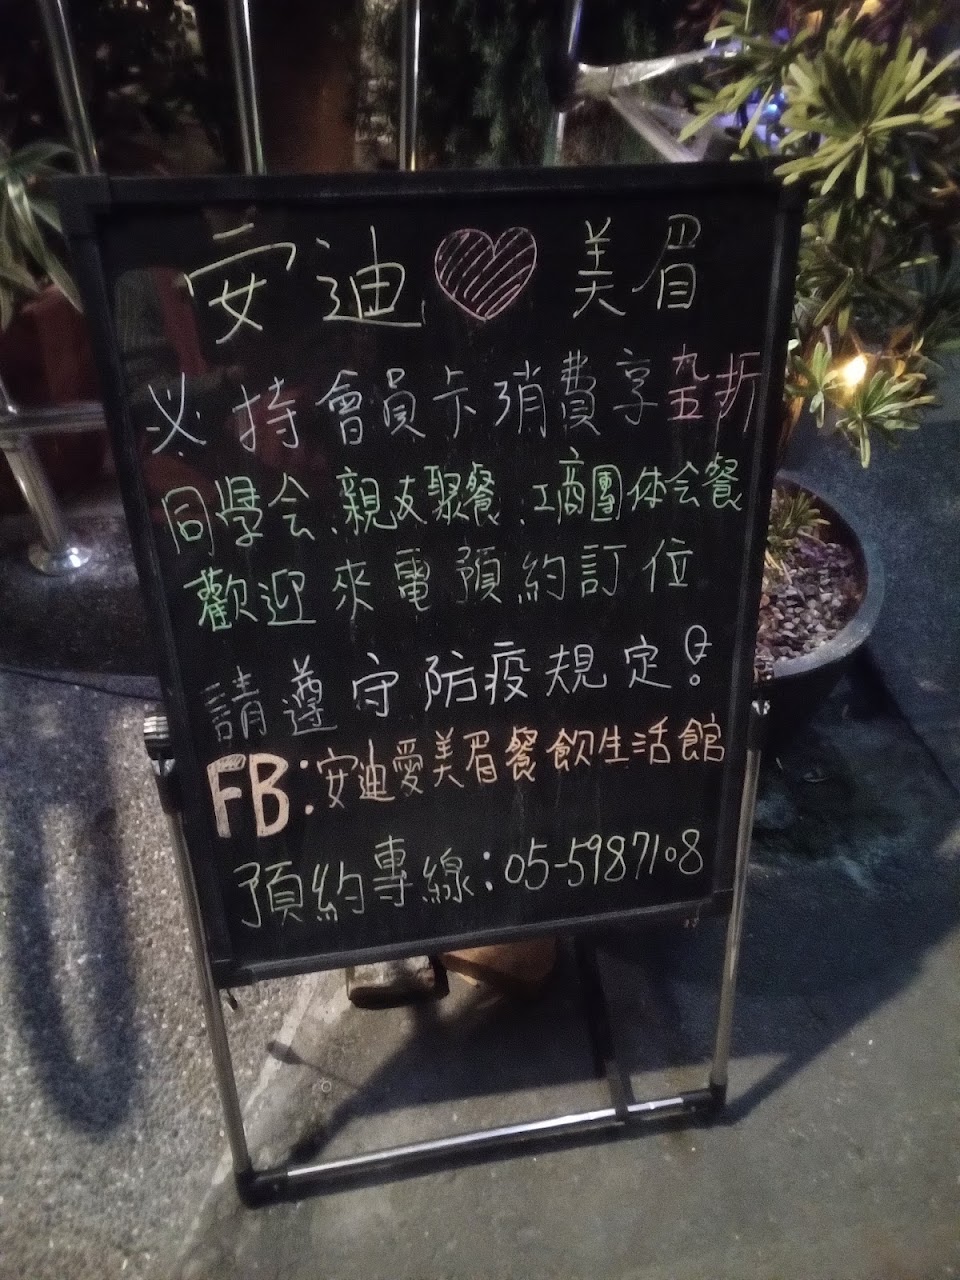 安迪♥美眉
必持會員卡消費享九五折
同學会、親友聚餐、工商團体会餐
歡迎來電預約訂位
請遵守防疫規定!
FB:安迪愛美眉餐飲生活館
預約專線:05-5987108